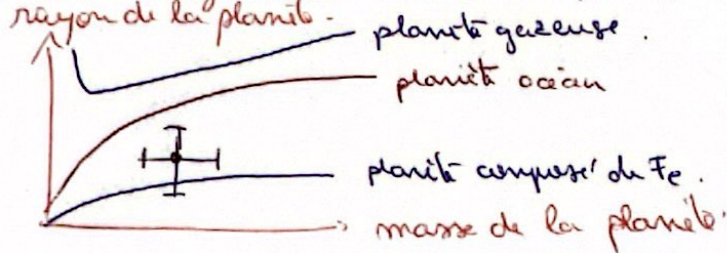 rayon de la planète.
planète gazeuse.
planète océan
planète composé de Fe.
masse de la planète.